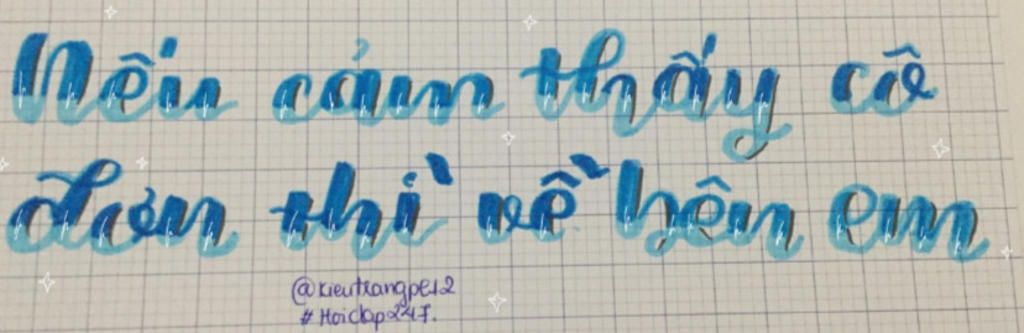 Nếu cảm thấy cô
đơn thì về bên em
@kieutrangpel2
# Hoidap247.